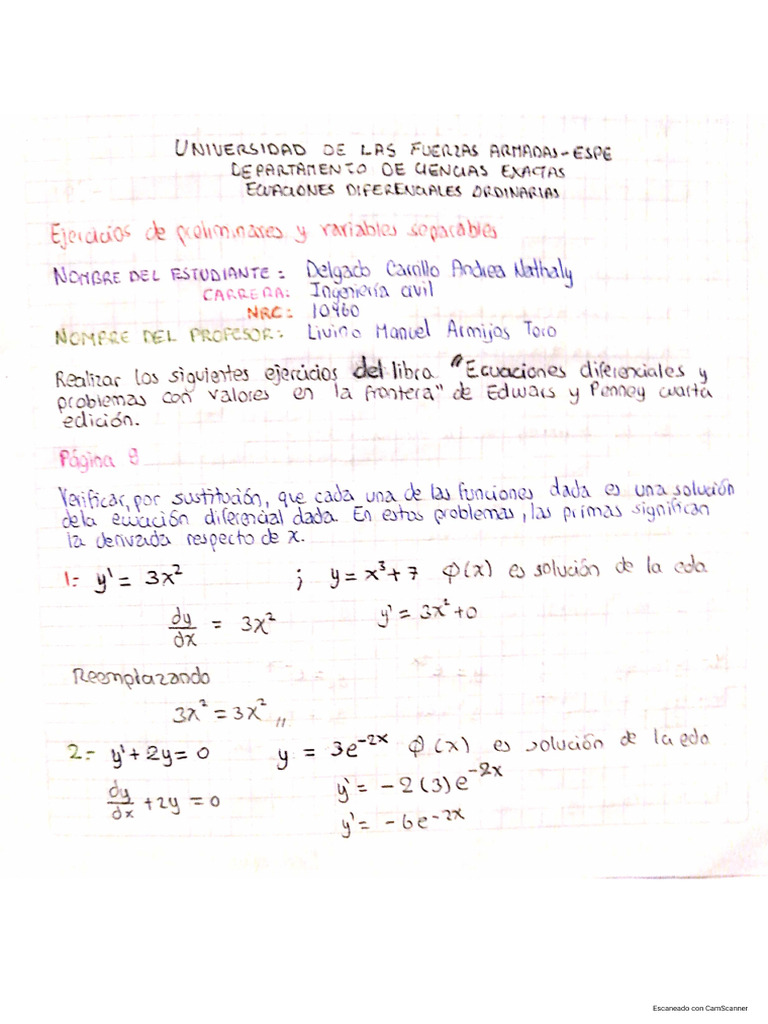 UNIVERSIDAD DE LAS FUERZAS ARMADAS-ESPE
DEPARTAMENTO DE CIENCIAS EXACTAS
ECUACIONES DIFERENCIALES ORDINARIAS
Ejercicios de preliminares y variables separables
NOMBRE DEL ESTUDIANTE: Delgado Carrillo Andrea Nathaly
CARRERA: Ingeniería civil
NRC: 10460
NOMBRE DEL PROFESOR: Livino Manuel Armijos Toro
Realizar los siguientes ejercicios del libro "Ecuaciones diferenciales y
problemas con valores en la frontera" de Edwars y Penney cuarta
edición.
Página 8
Verificar, por sustitución, que cada una de las funciones dada es una solución
de la ecuación diferencial dada. En estos problemas, las primas significan
la derivada respecto de x.
1.- y' = 3x² ; y = x³ + 7 φ(x) es solución de la edo
dy/dx = 3x² y' = 3x² + 0
Reemplazando
3x² = 3x² ,,
2.- y' + 2y = 0 y = 3e^{-2x} φ(x) es solución de la edo
dy/dx + 2y = 0 y' = -2(3)e^{-2x}
y' = -6e^{-2x}
Escaneado con CamScanner